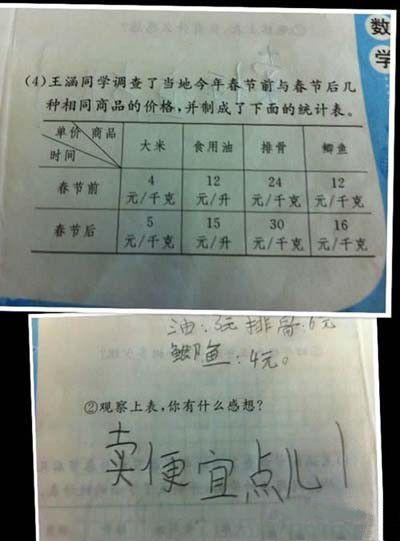 数
学
(4)王涵同学调查了当地今年春节前与春节后几
种相同商品的价格,并制成了下面的统计表。
单价 商品 时间 大米 食用油 排骨 鲫鱼
春节前 4元/千克 12元/升 24元/千克 12元/千克
春节后 5元/千克 15元/升 30元/千克 16元/千克
油:3元 排骨:6元
鲫鱼:4元。
②观察上表,你有什么感想?
卖便宜点儿!